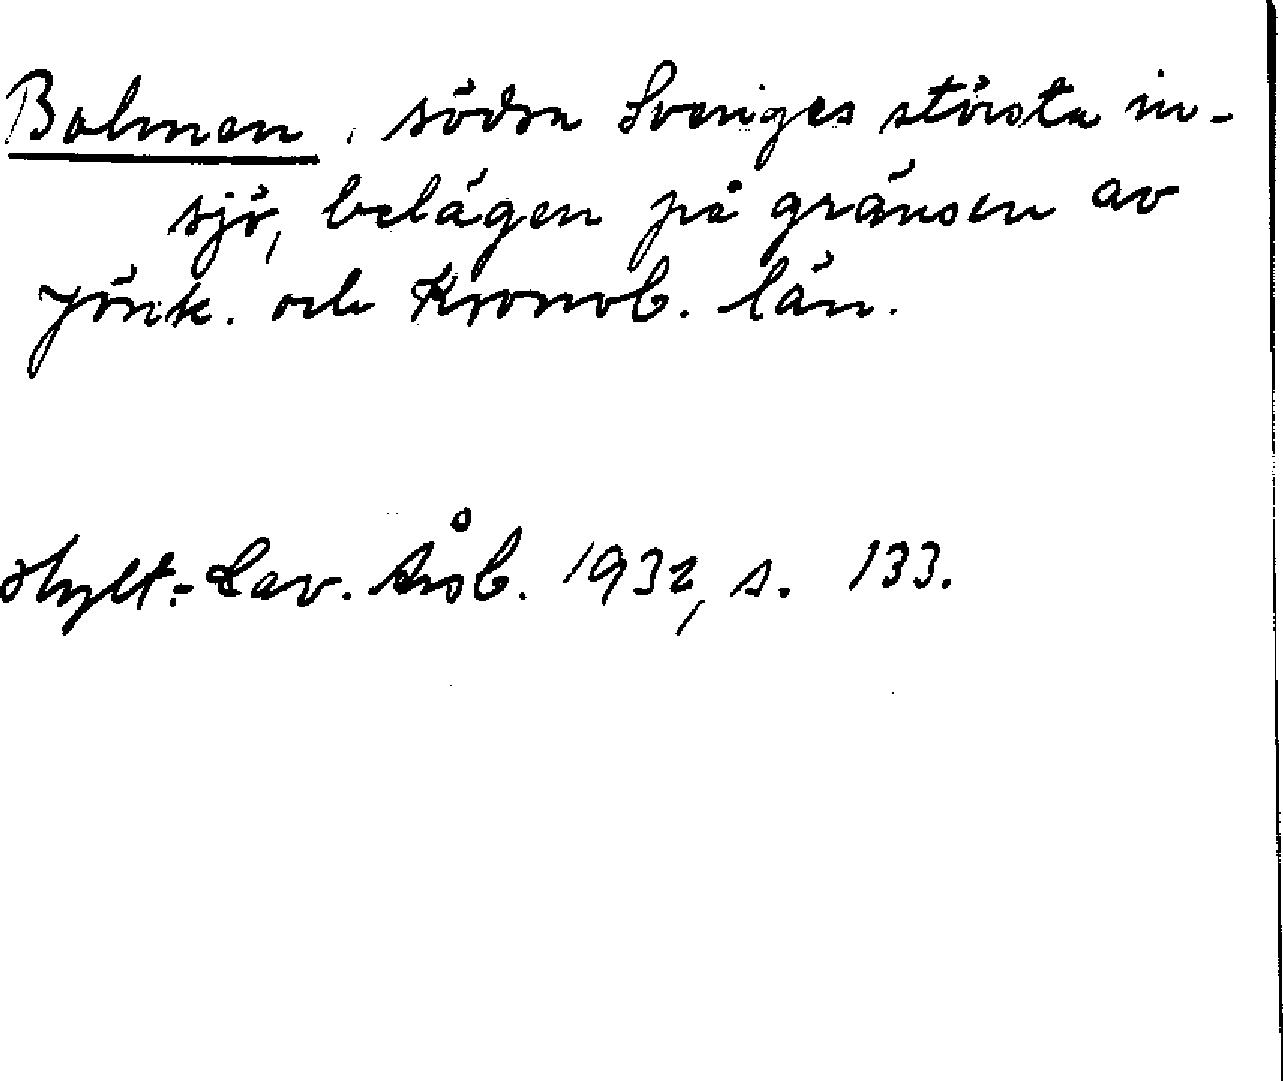 Bolmen, södra Sveriges största in-
sjö, belägen på gränsen av
Jönk. och Kronob. län.
Hylt.-Cav. Årsb. 1932, s. 133.